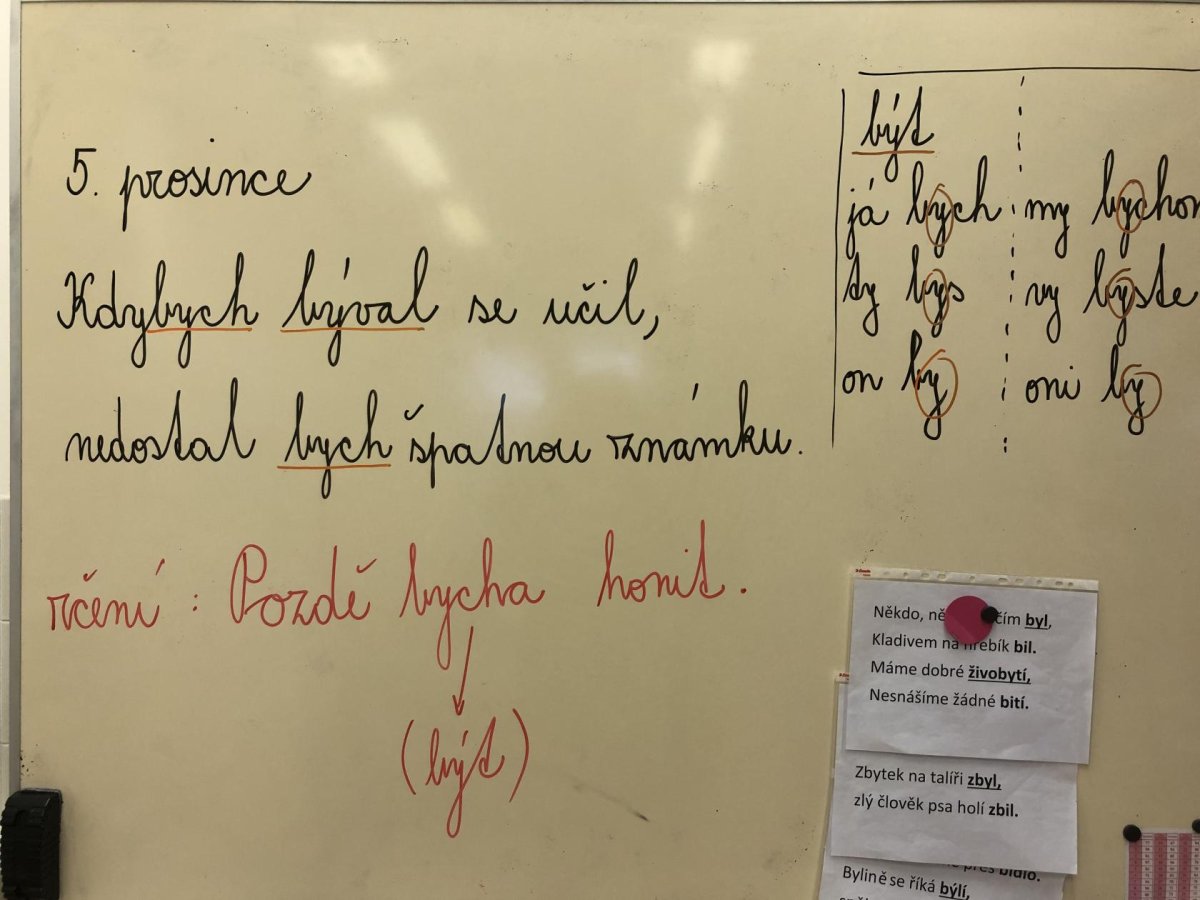 5. prosince
Kdybych býval se učil,
nedostal bych špatnou známku.
rčení: Pozdě bycha honit.
(být)
být
já bych my bychom
ty bys vy byste
on by oni by
Někdo, čím byl,
Kladivem na hřebík bil.
Máme dobré živobytí,
Nesnášíme žádné bití.
Zbytek na talíři zbyl,
zlý člověk psa holí zbil.
přes bidlo.
Bylině se říká býlí,